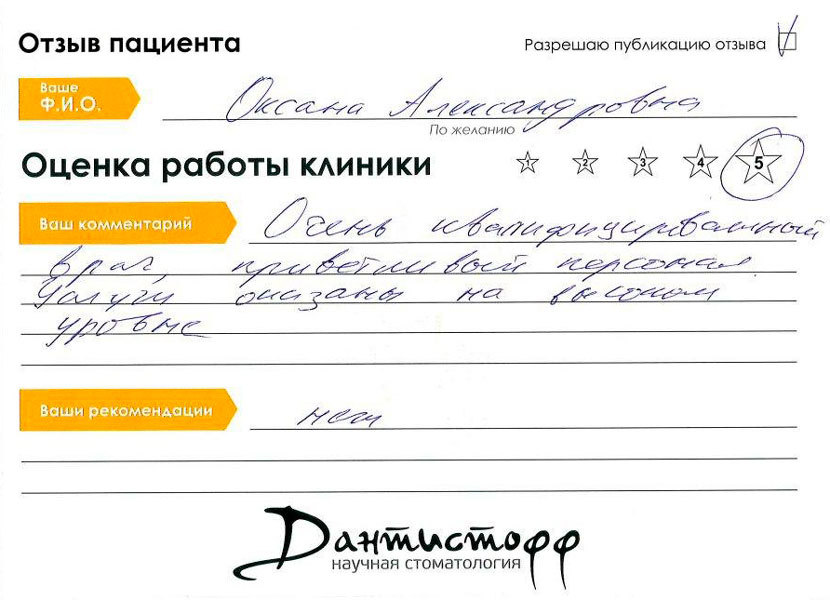 Отзыв пациента
Разрешаю публикацию отзыва
Ваше
Ф.И.О.
Оксана Александровна
По желанию
Оценка работы клиники
1 2 3 4 5
Ваш комментарий
Очень квалифицированный
врач, приветливый персонал
Услуги оказаны на высоком
уровне
Ваши рекомендации
нет
Дантистофф
научная стоматология